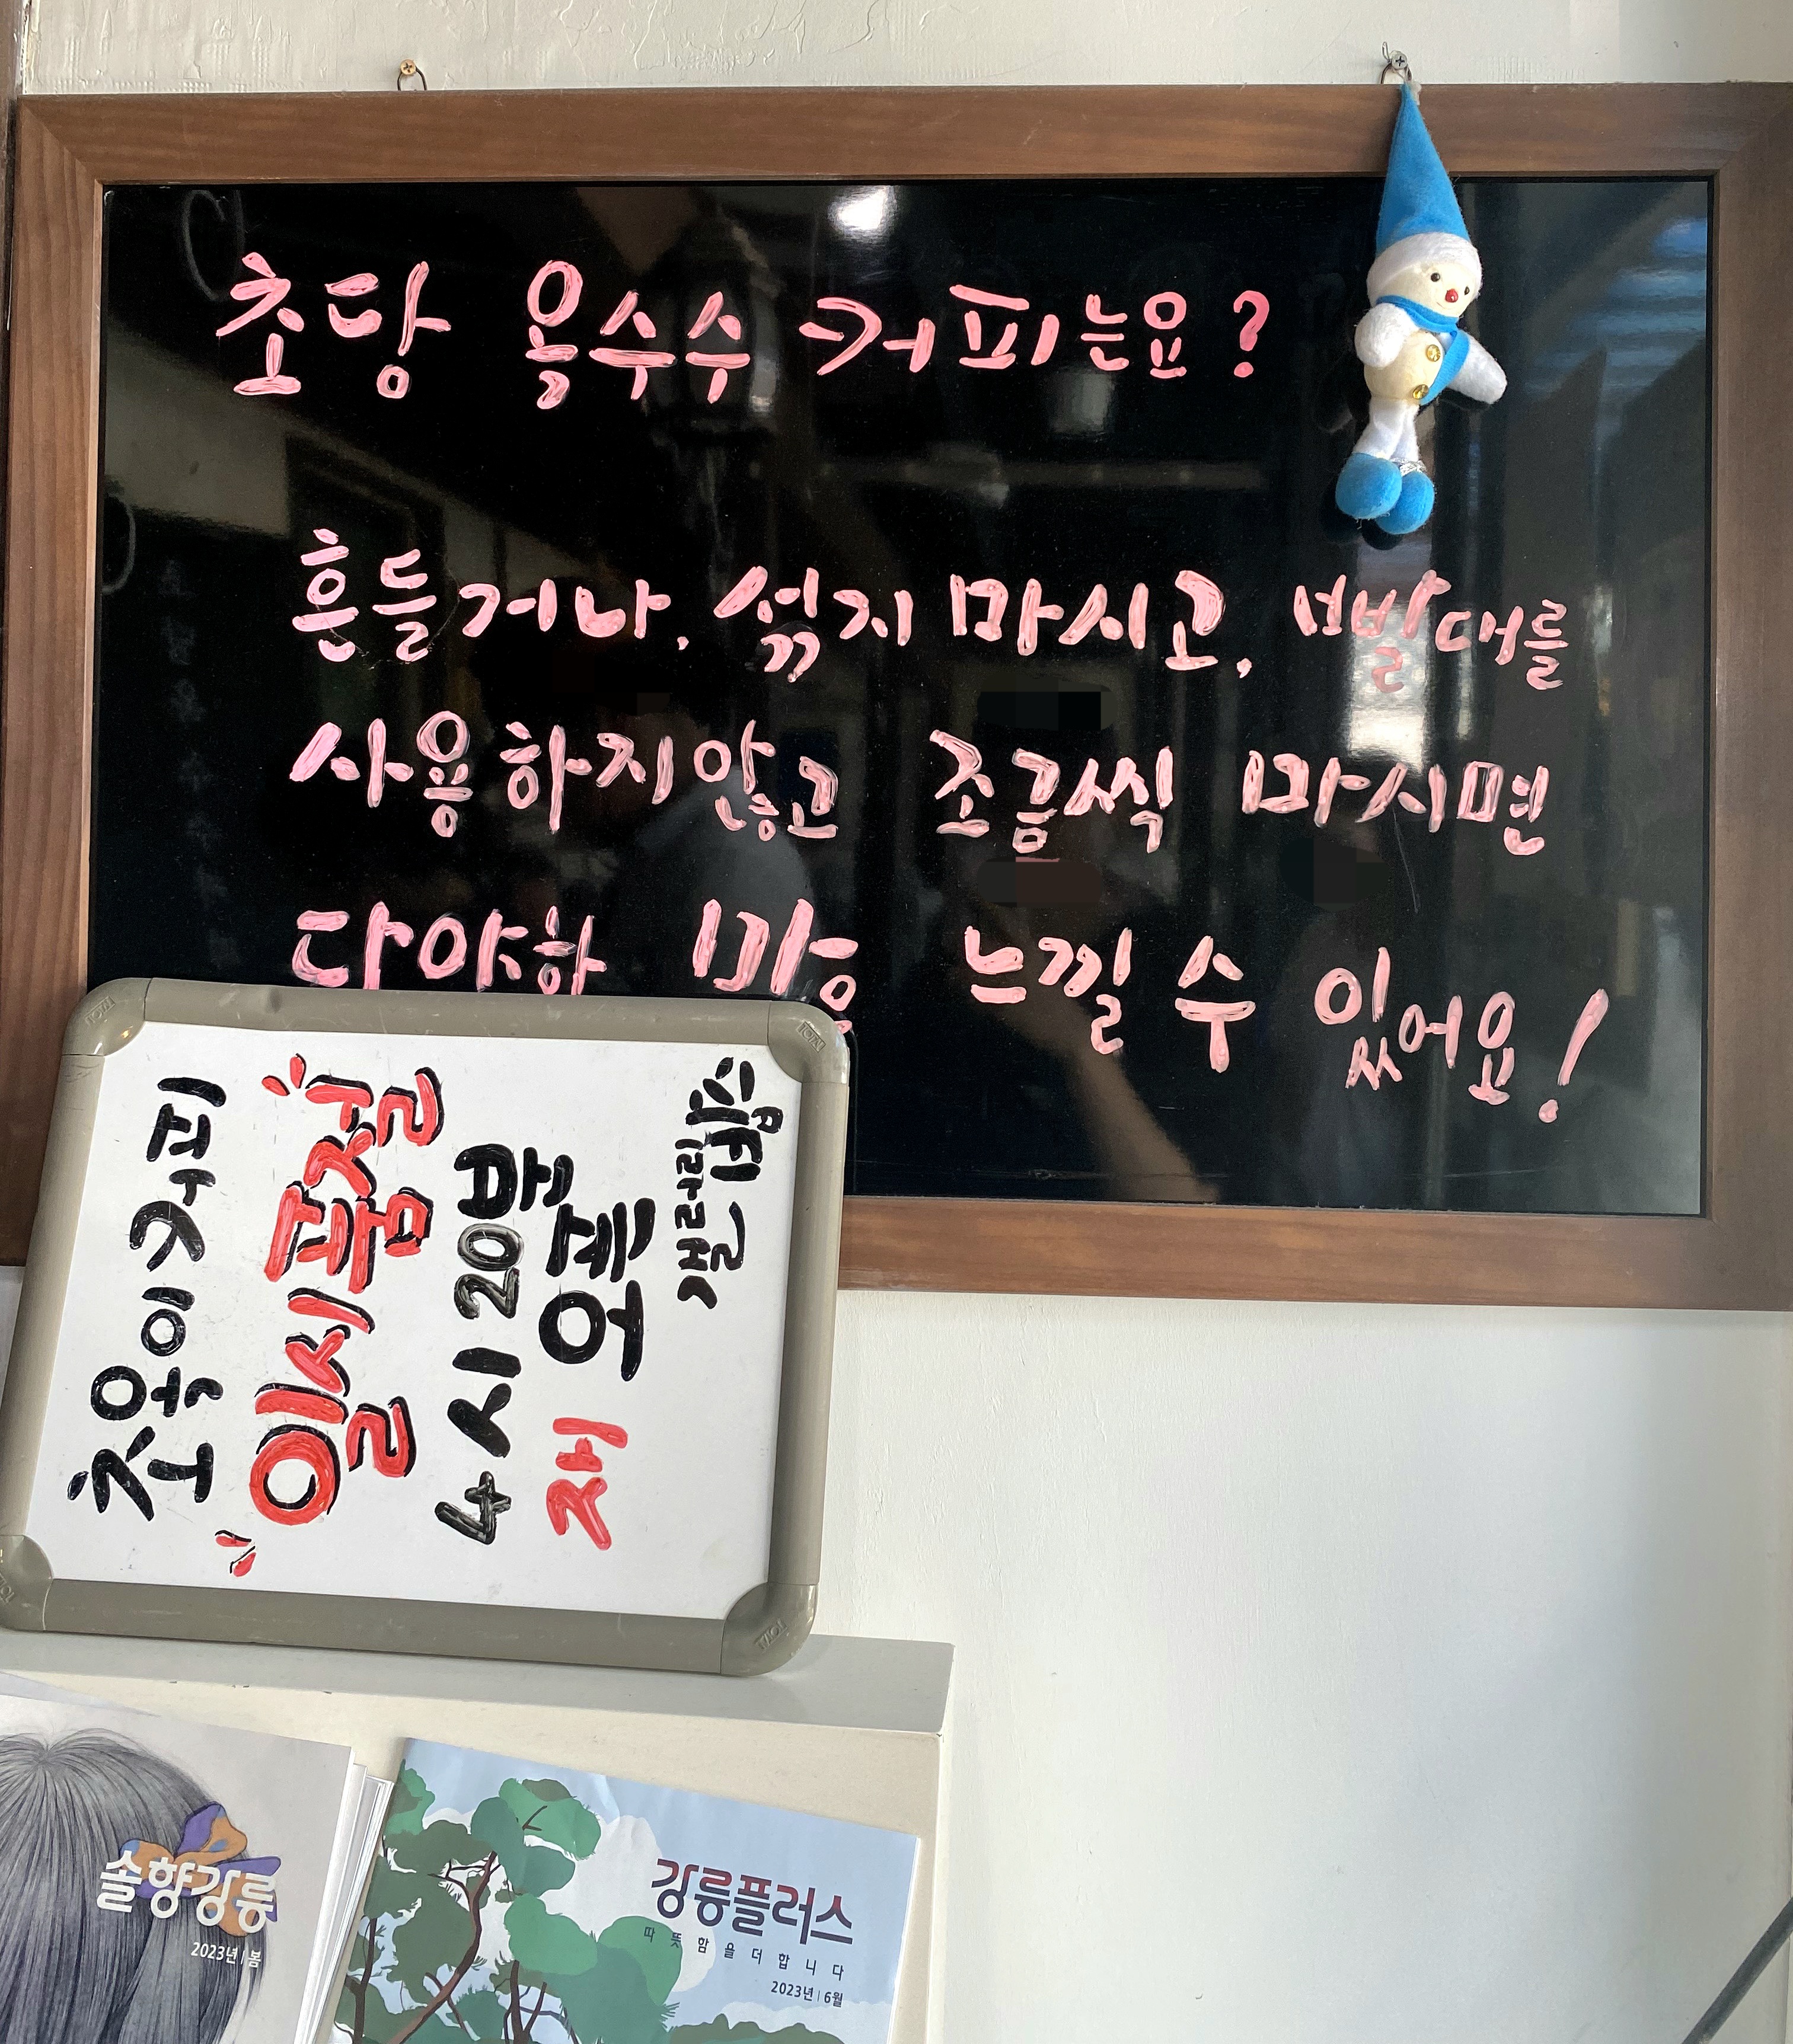 초당 옥수수 커피는요?
흔들거나, 섞지 마시고, 빨대를
사용하지않고 조금씩 마시면
다양한 맛을 느낄 수 있어요!
초옥이커피
일시품절
4시 20분
재오픈
갤러리밥스
솔향강릉
2023년 | 봄
강릉플러스
따뜻함을더합니다
2023년 | 6월
TOTAL
TOTAL
TOTAL